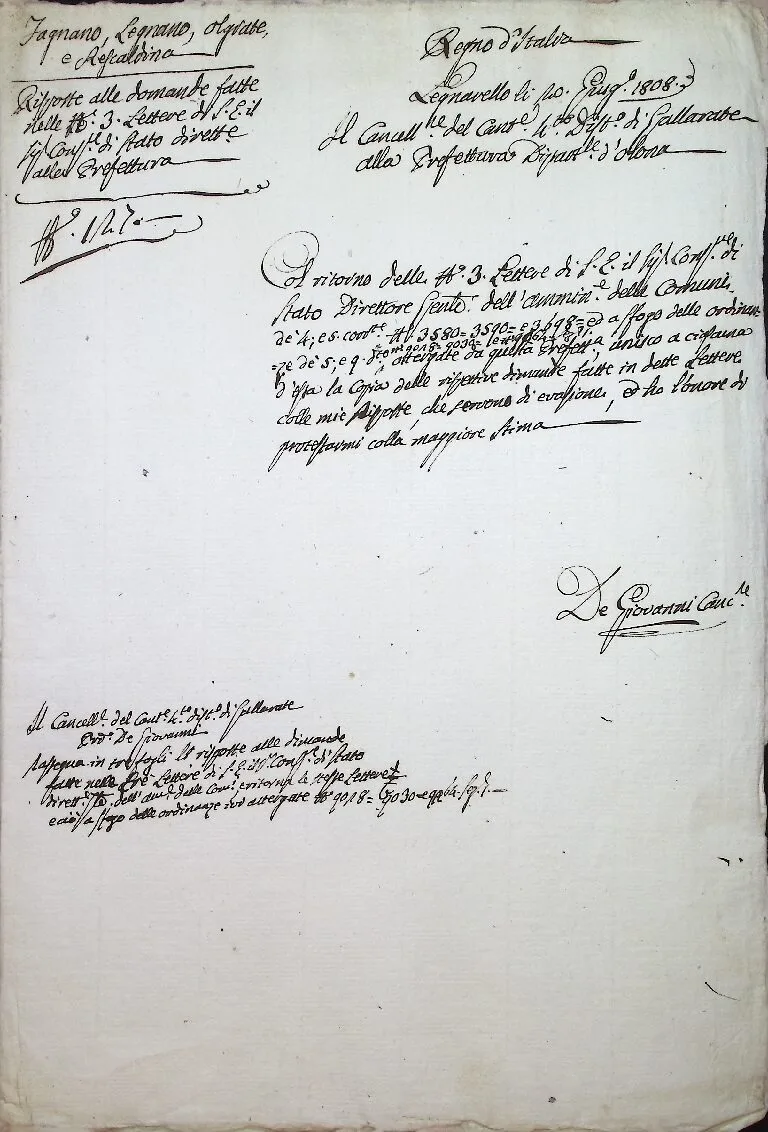 Fagnano, Legnano, Olgiate,
e Rescaldina
Risposte alle domande fatte
nelle N.° 3. Lettere di S. E. il
Sig.r Cons.re di Stato dirett.e
alla Prefettura
N.° 127.
Regno d'Italia
Legnarello li 20. Giug.° 1808.
Il Cancell.re del Cant.e 4.to Dist.o di Gallarate
alla Prefettura Dipart.le d'Olona
Col ritorno delle N.° 3. Lettere di S. E. il Sig.r Cons.re di
Stato Direttore Gen.le dell'ammin.e delle Comuni
de' 4, e 5 corr.te N.i 3580=3590= e 3698= ed a sfogo delle ordinan
=ze de' 5, e 9. d.to attergate da questa Prefett.a, unisco a ciascuna
d'essa la Copia delle rispettive dimande fatte in dette Lettere
colle mie Risposte, che servono di evasione, ed ho l'onore di
protestarmi colla maggiore stima
De Giovanni Canc.re
Il Cancell.e del Cant.e 4.to Dist.o di Gallarate
De Giovanni
Rassegna in tre fogli le risposte alle dimande
fatte nelle tre Lettere di S. E. il Sig.r Cons.re di Stato
dell'am.e delle Com.i, e ritorna le stesse Lettere
e ciò a sfogo delle ordinanze ivi attergate N.i 9018= 9030= e 9264.